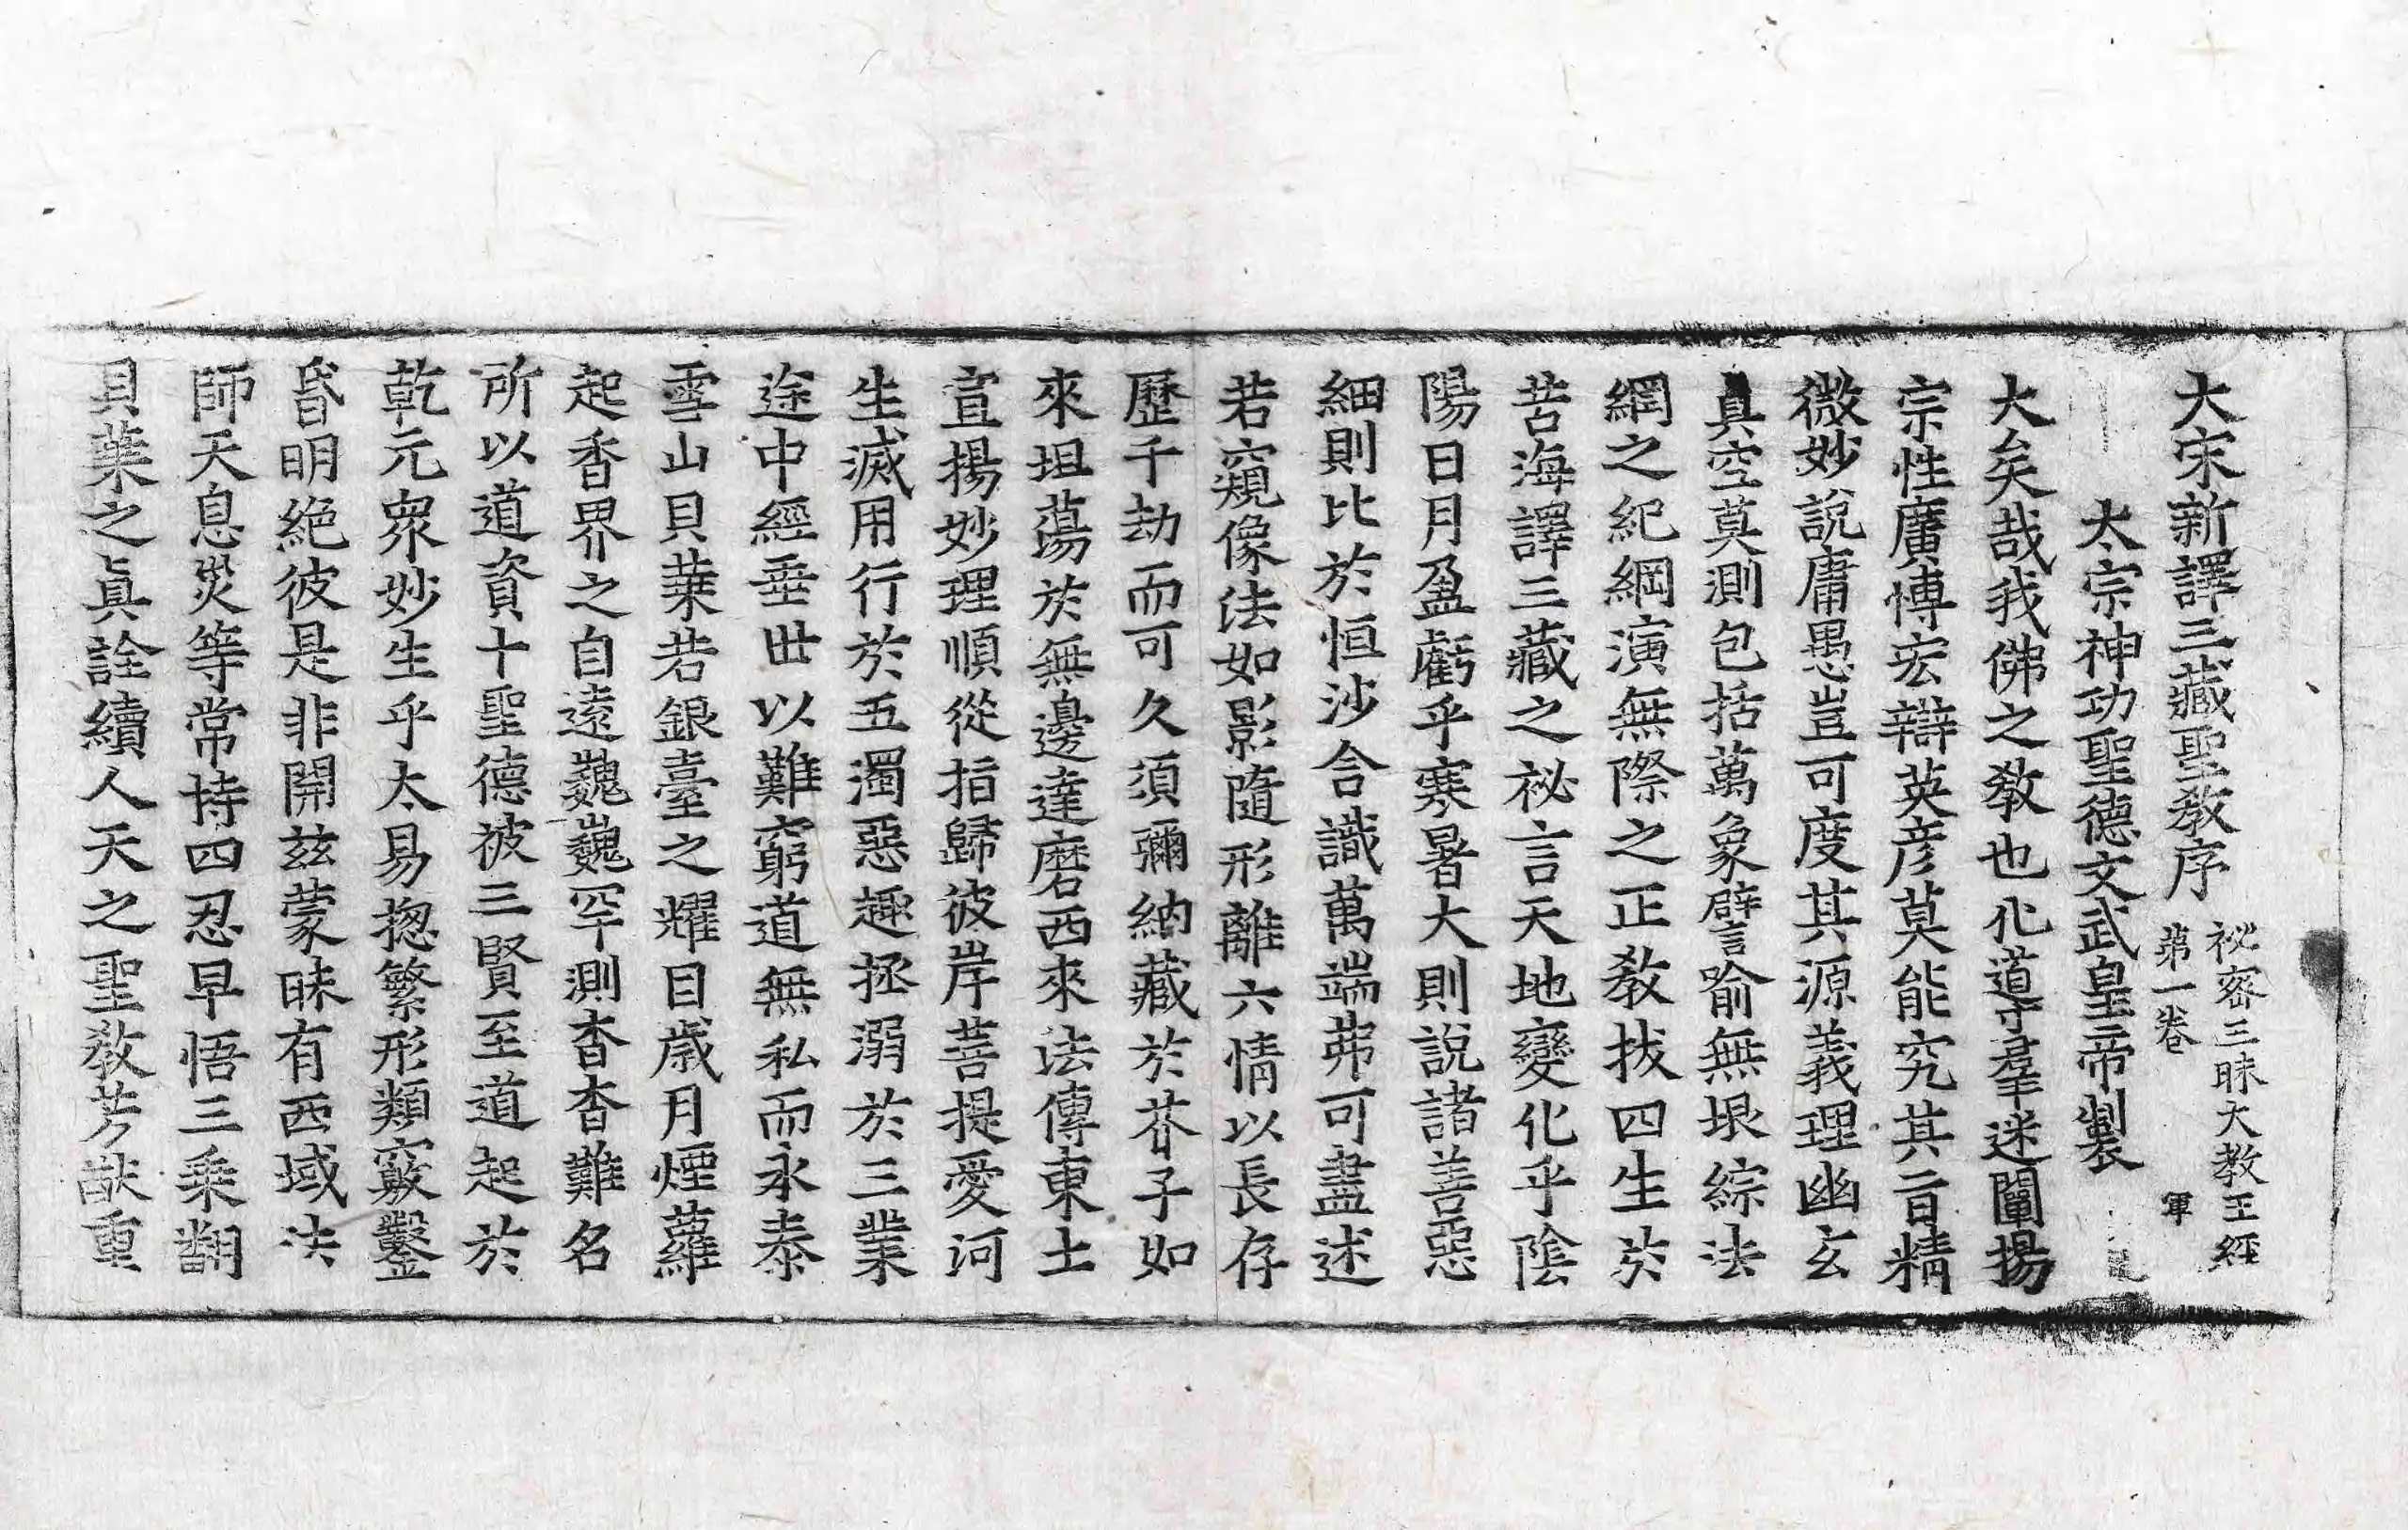 大宋新譯三藏聖教序 祕密三昧大教王經
第一卷 軍
太宗神功聖德文武皇帝製
大矣哉我佛之教也化導羣迷闡揚
宗性廣博宏辯英彦莫能究其旨精
微妙說庸愚豈可度其源義理幽玄
真空莫測包括萬象譬喻無垠綜法
網之紀綱演無際之正教拔四生於
苦海譯三藏之祕言天地變化乎陰
陽日月盈虧乎寒暑大則說諸善惡
細則比於恒沙含識萬端弗可盡述
若窺像法如影隨形離六情以長存
歷千劫而可久須彌納藏於芥子如
來坦蕩於無邊達磨西來法傳東土
宣揚妙理順從指歸彼岸菩提愛河
生滅用行於五濁惡趣拯溺於三業
途中經垂世以難窮道無私而永泰
雪山貝葉若銀臺之耀目歲月煙蘿
起香界之自遠巍巍罕測杳杳難名
所以道資十聖德被三賢至道起於
乾元眾妙生乎太易揔繁形類竅鑿
昏明絕彼是非開茲蒙昧有西域法
師天息災等常持四忍早悟三乘翻
貝葉之真詮續人天之聖教芳猷重